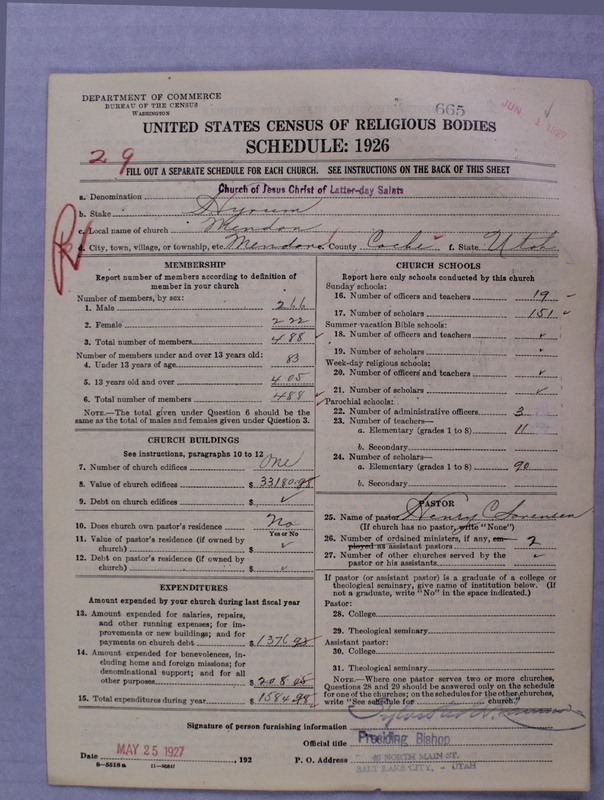 DEPARTMENT OF COMMERCE
BUREAU OF THE CENSUS
WASHINGTON
665
JUN 1 1927
UNITED STATES CENSUS OF RELIGIOUS BODIES
SCHEDULE: 1926
29
FILL OUT A SEPARATE SCHEDULE FOR EACH CHURCH. SEE INSTRUCTIONS ON THE BACK OF THIS SHEET
a. Denomination Church of Jesus Christ of Latter-day Saints
b. Stake Hyrum
c. Local name of church Mendon
d. City, town, village, or township, etc. Mendon e. County Cache f. State Utah
MEMBERSHIP
Report number of members according to definition of
member in your church
Number of members, by sex:
1. Male 266
2. Female 222
3. Total number of members 488
Number of members under and over 13 years old:
4. Under 13 years of age 83
5. 13 years old and over 405
6. Total number of members 488
NOTE.—The total given under Question 6 should be the
same as the total of males and females given under Question 3.
CHURCH BUILDINGS
See instructions, paragraphs 10 to 12
7. Number of church edifices One
8. Value of church edifices $ 33180.
9. Debt on church edifices $ ✓
10. Does church own pastor's residence No
Yes or No
11. Value of pastor's residence (if owned by
church) $ ✓
12. Debt on pastor's residence (if owned by
church) $ ✓
EXPENDITURES
Amount expended by your church during last fiscal year
13. Amount expended for salaries, repairs,
and other running expenses; for im-
provements or new buildings; and for
payments on church debt $ 1376.
14. Amount expended for benevolences, in-
cluding home and foreign missions; for
denominational support; and for all
other purposes $ 208.
15. Total expenditures during year $ 1584.
CHURCH SCHOOLS
Report here only schools conducted by this church
Sunday schools:
16. Number of officers and teachers 19
17. Number of scholars 151
Summer-vacation Bible schools:
18. Number of officers and teachers ✓
19. Number of scholars
Week-day religious schools:
20. Number of officers and teachers ✓
21. Number of scholars ✓
Parochial schools:
22. Number of administrative officers 3
23. Number of teachers—
a. Elementary (grades 1 to 8) 11
b. Secondary
24. Number of scholars—
a. Elementary (grades 1 to 8) 90
b. Secondary
PASTOR
25. Name of pastor Henry C. Sorensen
(If church has no pastor, write "None")
26. Number of ordained ministers, if any, em-
ployed as assistant pastors 2
27. Number of other churches served by the
pastor or his assistants ✓
If pastor (or assistant pastor) is a graduate of a college or
theological seminary, give name of institution below. (If
not a graduate, write "No" in the space indicated.)
Pastor:
28. College
29. Theological seminary
Assistant pastor:
30. College
31. Theological seminary
NOTE.—Where one pastor serves two or more churches,
Questions 28 and 29 should be answered only on the schedule
for one of the churches; on the schedules for the other churches,
write "See schedule for church."
Signature of person furnishing information
Official title Presiding Bishop
Date MAY 25 1927, 192 P. O. Address 40 NORTH MAIN ST.
SALT LAKE CITY, UTAH
8—5518 a